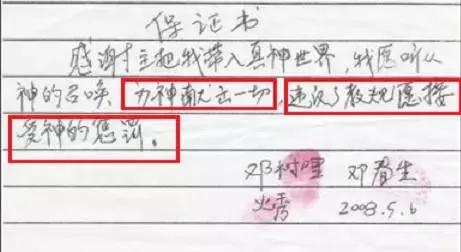 保证书
感谢主把我带入真神世界，我愿听从
神的召唤 为神献出一切，违反了教规愿接
受神的惩罚。
邓树理 邓春生
火秀 2008.5.6